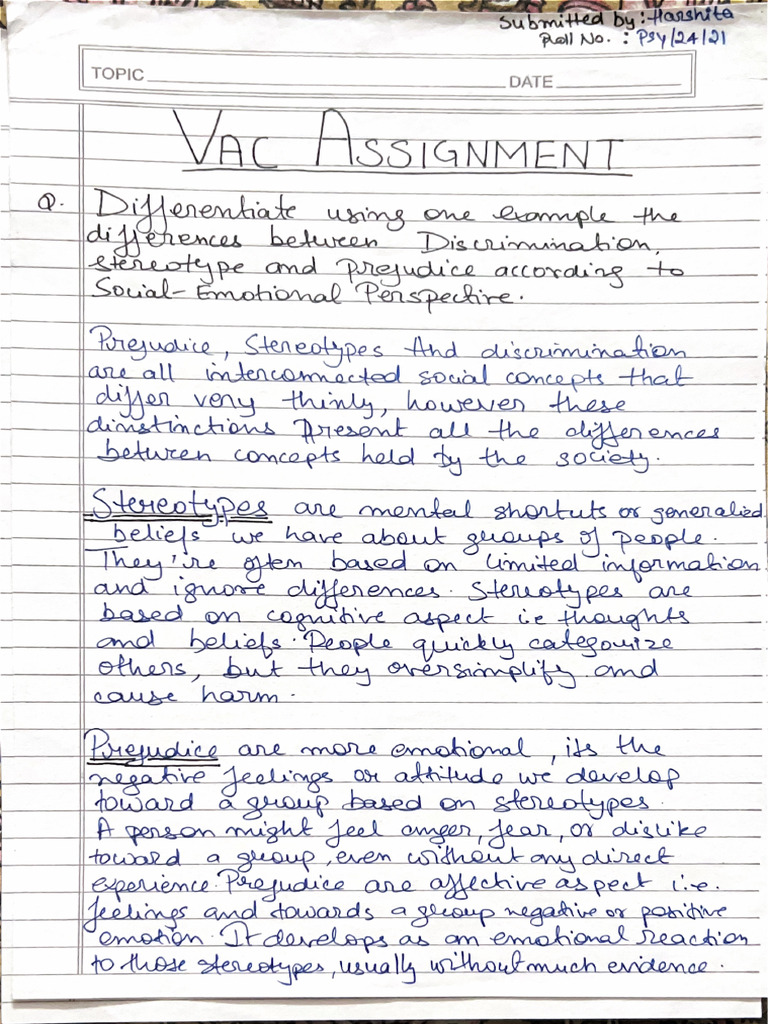 Submitted by: Harshita
Roll No. : PSY/24/21
TOPIC DATE
VAC ASSIGNMENT
Q. Differentiate using one example the
differences between Discrimination,
stereotype and prejudice according to
Social-Emotional Perspective.
Prejudice, Stereotypes And discrimination
are all interconnected social concepts that
differ very thinly, however these
dinstinctions Present all the differences
between concepts held by the society.
Stereotypes are mental shortcuts or generalized
beliefs we have about groups of people.
They're often based on limited information
and ignore differences. Stereotypes are
based on cognitive aspect i.e thoughts
and beliefs. People quickly categorize
others, but they oversimplify and
cause harm.
Prejudice are more emotional, its the
negative feelings or attitude we develop
toward a group based on stereotypes.
A person might feel anger, fear, or dislike
toward a group, even without any direct
experience. Prejudice are affective aspect i.e.
feelings and towards a group negative or positive
emotion. It develops as an emotional reaction
to those stereotypes, usually without much evidence.